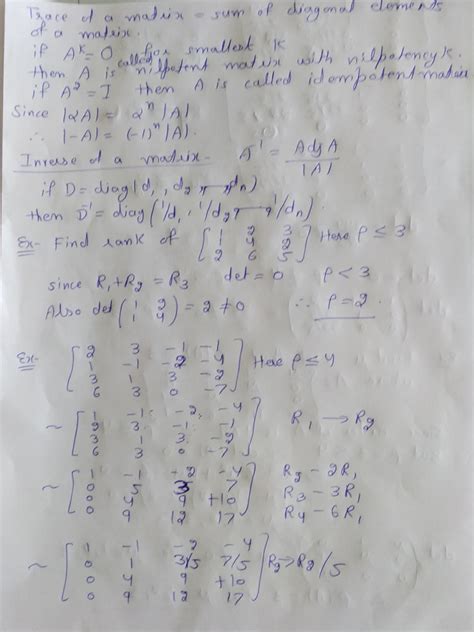 Trace of a matrix = sum of diagonal elements
of a matrix.
if A^k = 0 for smallest k
then A is called nilpotent matrix with nilpotency k.
if A² = I then A is called idempotent matrix
Since |αA| = α^n |A|
∴ |-A| = (-1)^n |A|.
Inverse of a matrix. A^-1 = Adj A / |A|
if D = diag(d₁, d₂, , dn)
then D^-1 = diag(1/d₁, 1/d₂, , 1/dn).
Ex- Find rank of [1 2 3; 1 4 2; 2 6 5] Here ρ ≤ 3
since R₁+R₂ = R₃ det = 0 ρ < 3
Also det(1 2; 1 4) = 2 ≠ 0 ∴ ρ = 2.
Ex- [2 3 -1 -1; 1 -1 -2 -4; 3 1 3 -2; 6 3 0 -7] Here ρ ≤ 4
~ [1 -1 -2 -4; 2 3 -1 -1; 3 1 3 -2; 6 3 0 -7] R₁ → R₂
~ [1 -1 -2 -4; 0 5 3 7; 0 4 9 +10; 0 9 12 17] R₂ - 2R₁
R₃ - 3R₁
R₄ - 6R₁
~ [1 -1 -2 -4; 0 1 3/5 7/5; 0 4 9 +10; 0 9 12 17] R₂→R₂/5